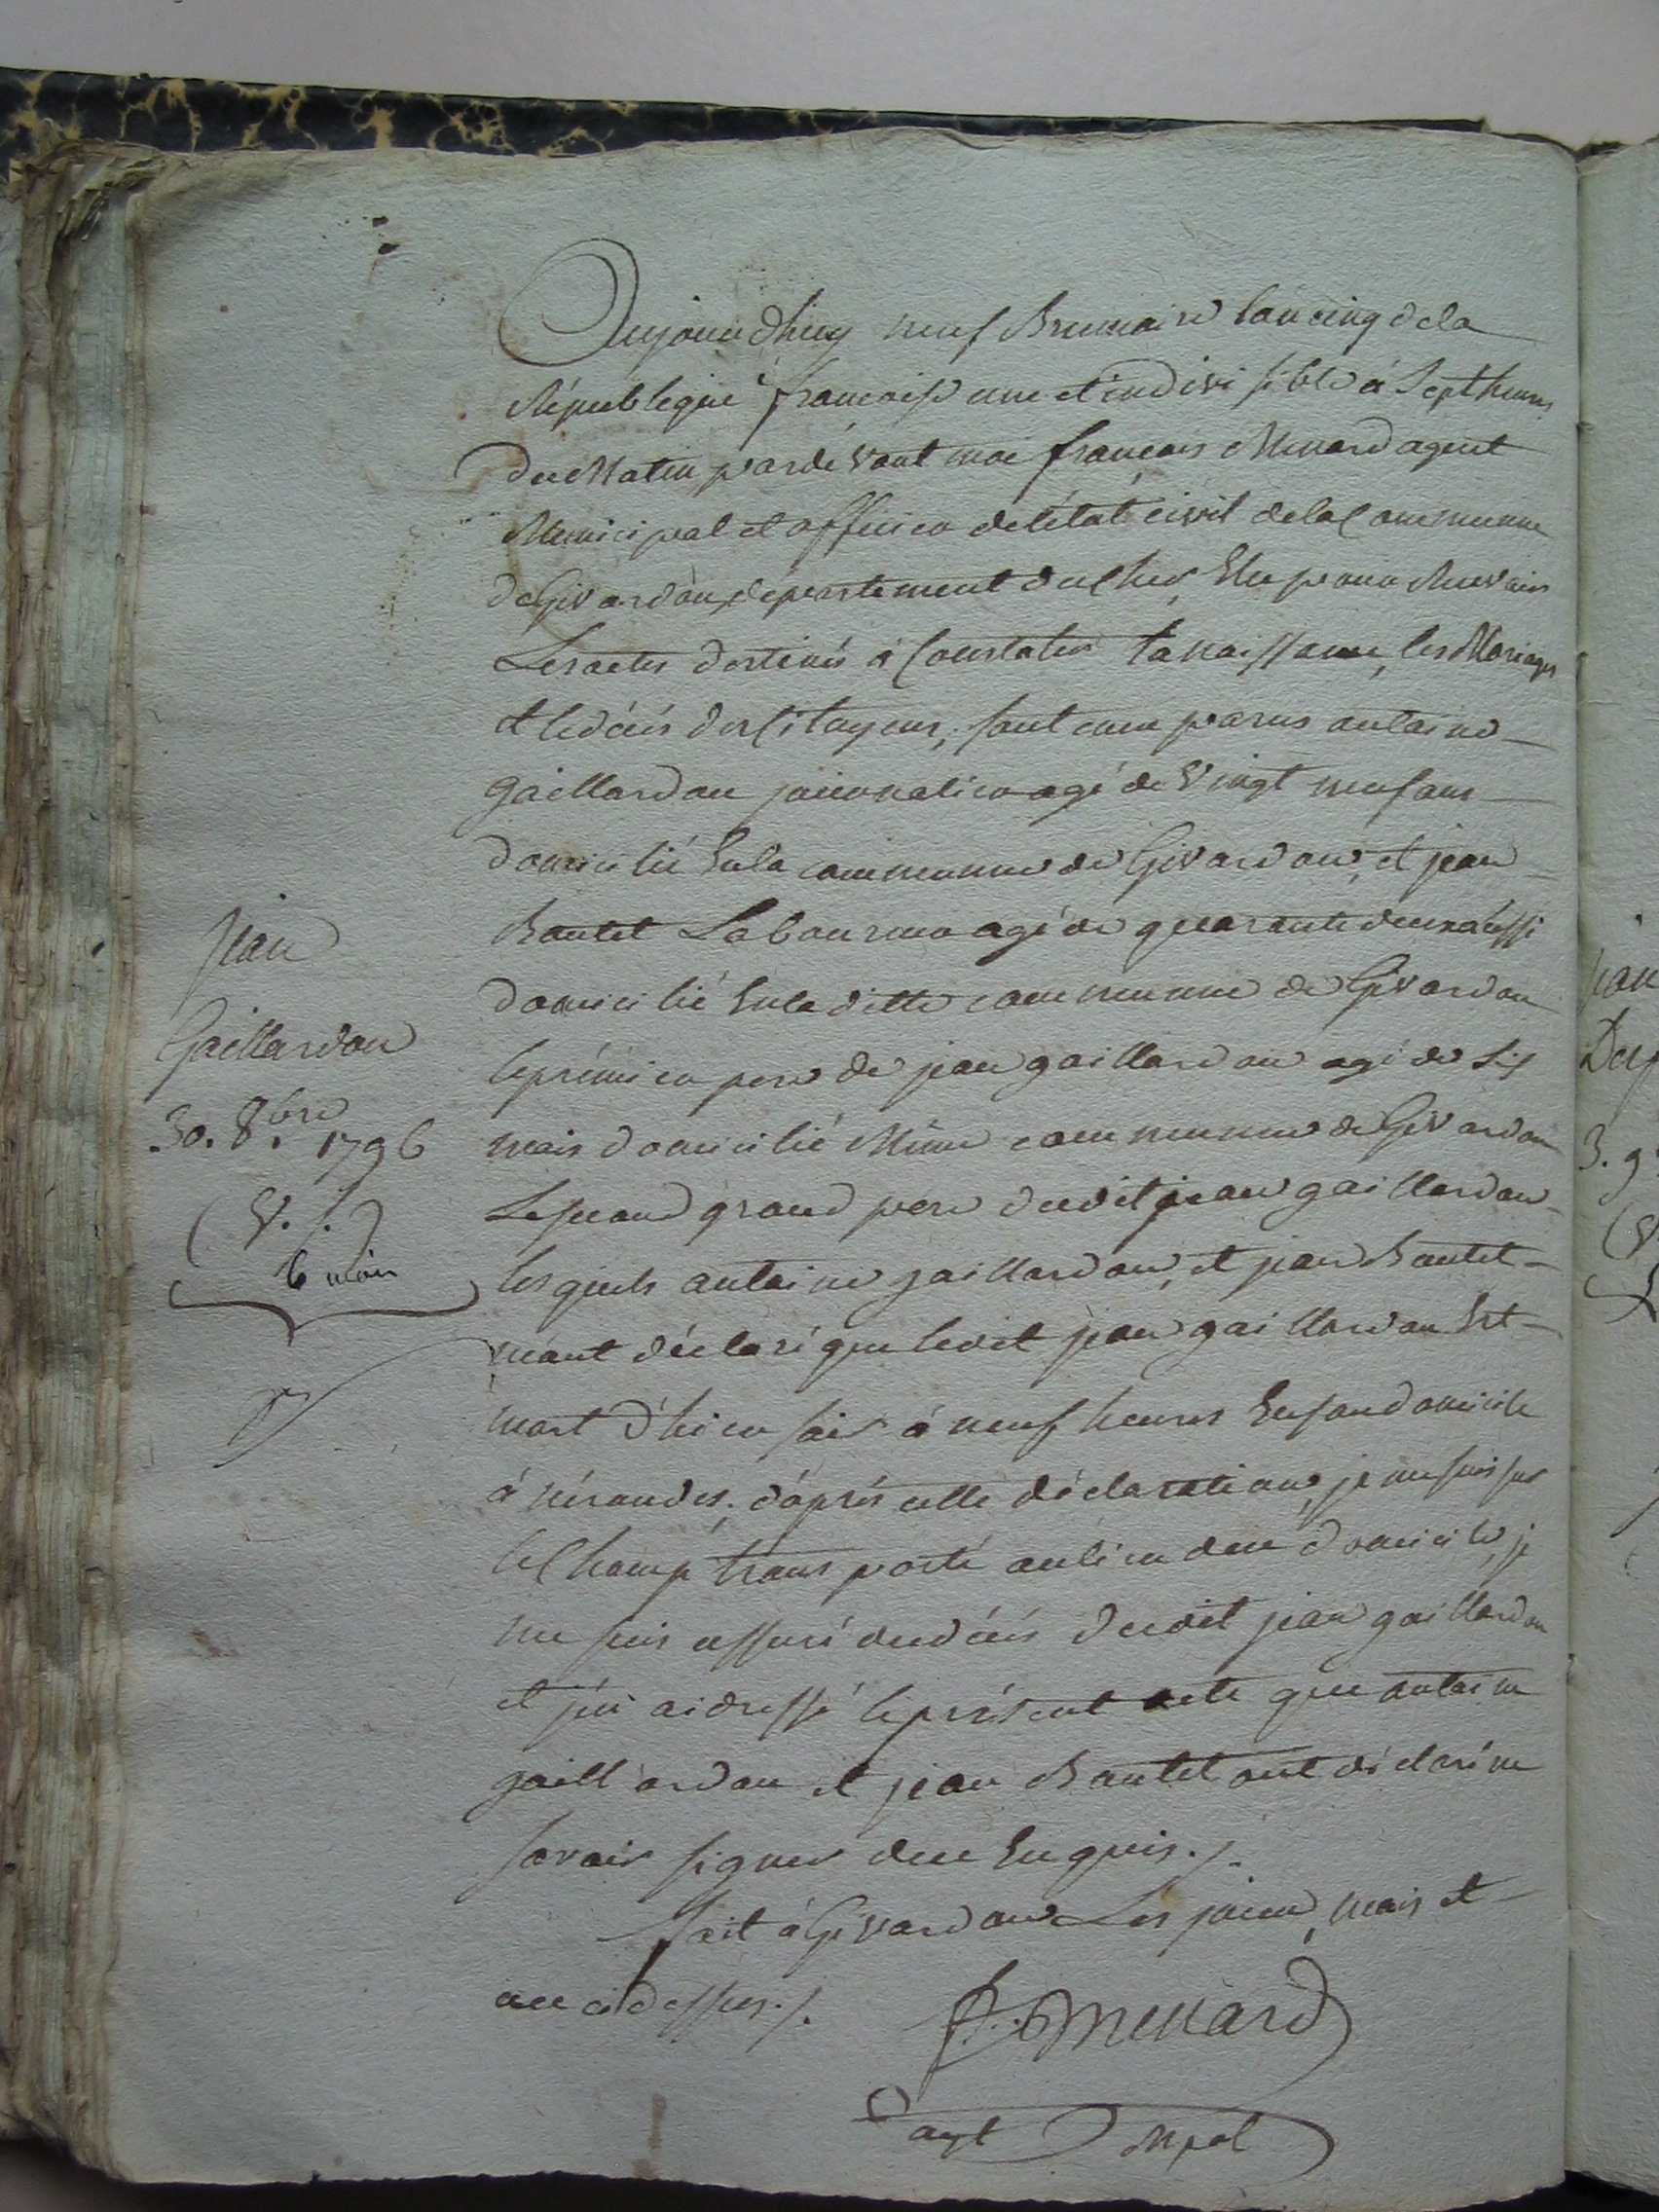 Aujourdhuy neuf Brumaire l'an cinq dela
République françoise une et indivisible à Sept heures
du Matin pardevant moi françois Menard agent
Municipal et officier de létat civil dela Commune
de Givardon, departement du Cher, Elu pour Recevoir
Les actes destinés à Constater la naissance, les Mariages
et le décés des Citoyens; sont comparus antoine
gaillardon journalier agé de vingt neuf ans
domicilié En la commune de Givardon, et jean
Bautet Laboureur agé de quarante deux aussi
domicilié En la ditte commune de Givardon
le prémier pere de jean gaillardon agé de six
mois domicilié Même commune de Givardon
Le second grand pere dudit jean gaillardon
lesquels antoine gaillardon, et jean Bautet
m'ont déclaré que ledit jean gaillardon Est
mort d'hier soir à neuf heures En son domicile
à nérondes; d'aprés cette déclaration, je me suis sur
le Champ transporté au lieu du domicile, je
me suis assuré du décés dudit jean gaillardon
et j'en ai dressé le présent acte que antoine
gaillardon et jean Bautet ont déclaré ne
savoir signer de ce Enquis./.
Fait à Givardon Les jour, mois et
an ci dessus./.
F. Menard
agt Mpal
Jean
Gaillardon
30. 8.bre 1796
(V. S.)
6 mois
jean
3. 9